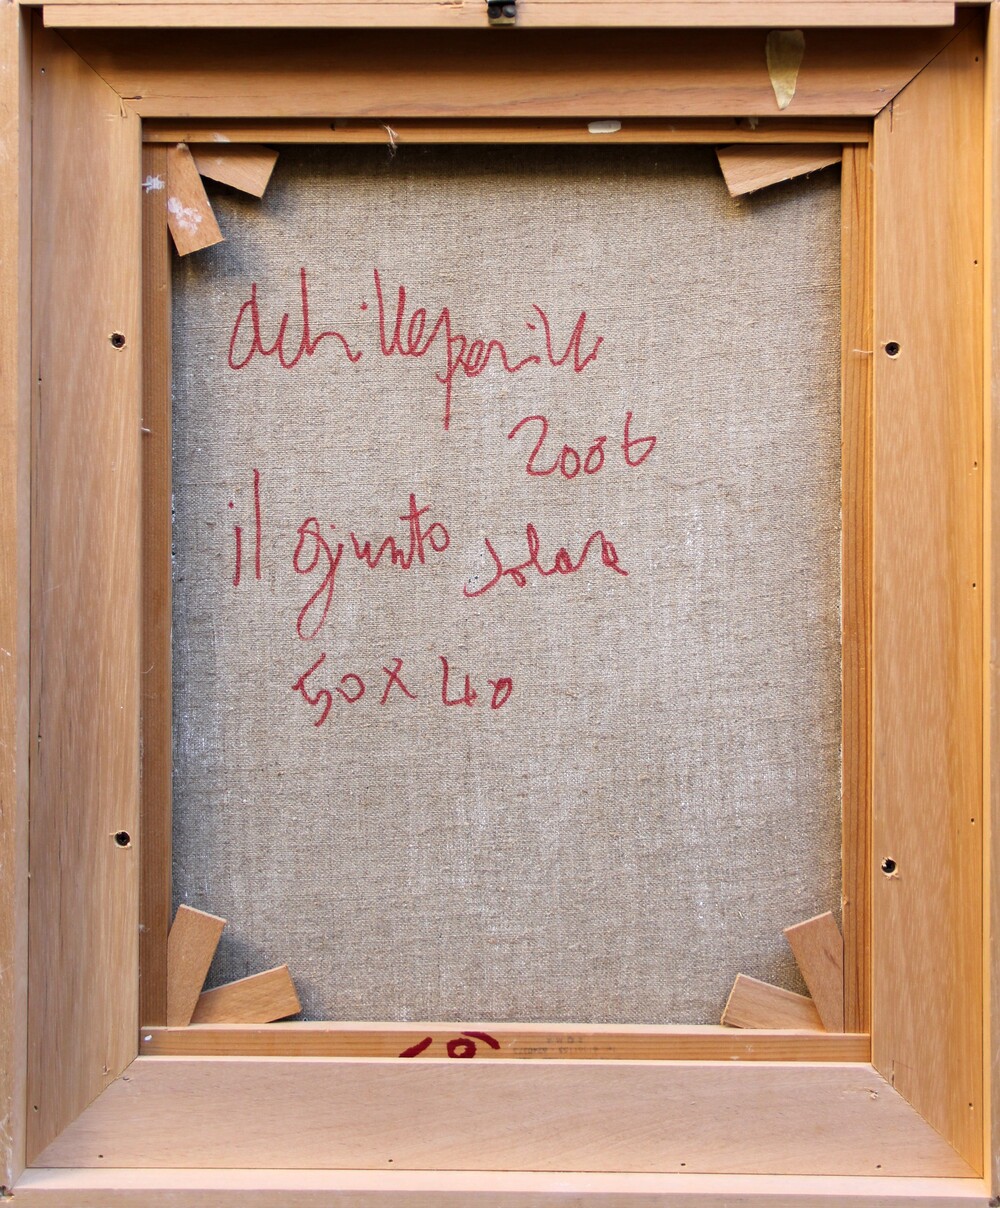 achilleperilli
2006
il giunto solare
50 x 40